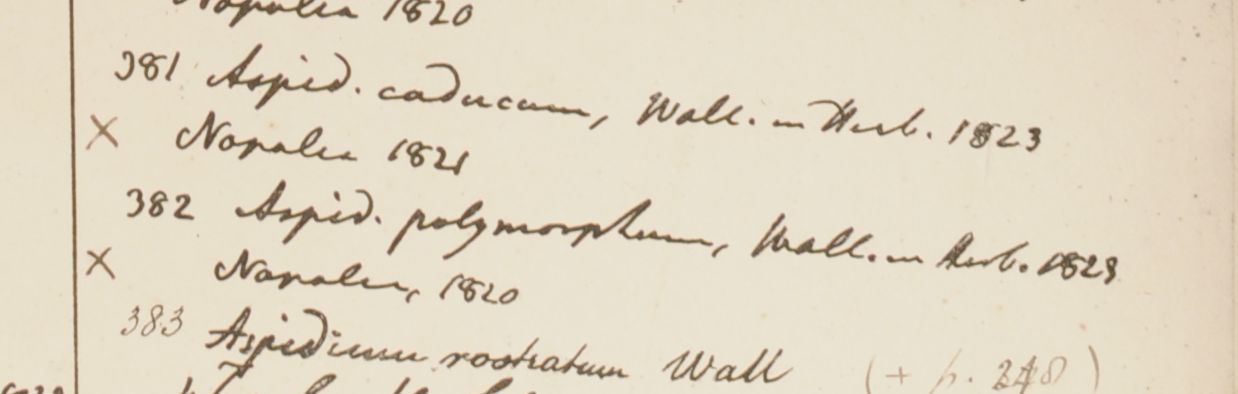 Napalia 1820
381 Aspid. caducum, Wall. in Herb. 1823
× Napalia 1821
382 Aspid. polymorphum, Wall. in Herb. 1823
× Napalia, 1820
383 Aspidium rostratum Wall (+ p. 248)